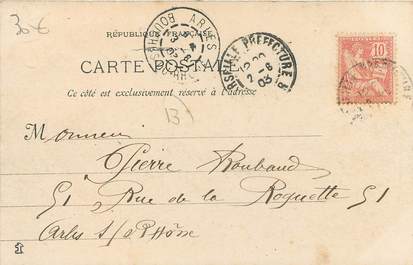 30€
RÉPUBLIQUE FRANÇAISE
ARLES
BOUCHES
CARTE POSTALE
MARSEILLE PREFECTURE
2-6
03
10
Ce côté est exclusivement réservé à l'adresse
B
Monsieur
Pierre Roubaud
51 Rue de la Roquette 51
Arles s/ Rhône